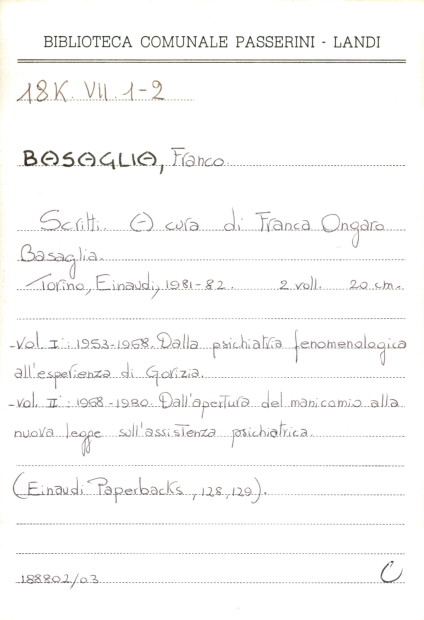 BIBLIOTECA COMUNALE PASSERINI - LANDI
18K. VII. 1-2
BASAGLIA, Franco.
Scritti. A cura di Franca Ongaro
Basaglia.
Torino, Einaudi, 1981-82. 2 voll. 20 cm.
-Vol. I°: 1953-1968. Dalla psichiatria fenomenologica
all'esperienza di Gorizia.
-Vol. II°: 1968-1980. Dall'apertura del manicomio alla
nuova legge sull'assistenza psichiatrica.
(Einaudi Paperbacks, 128, 129).
188802/03 C